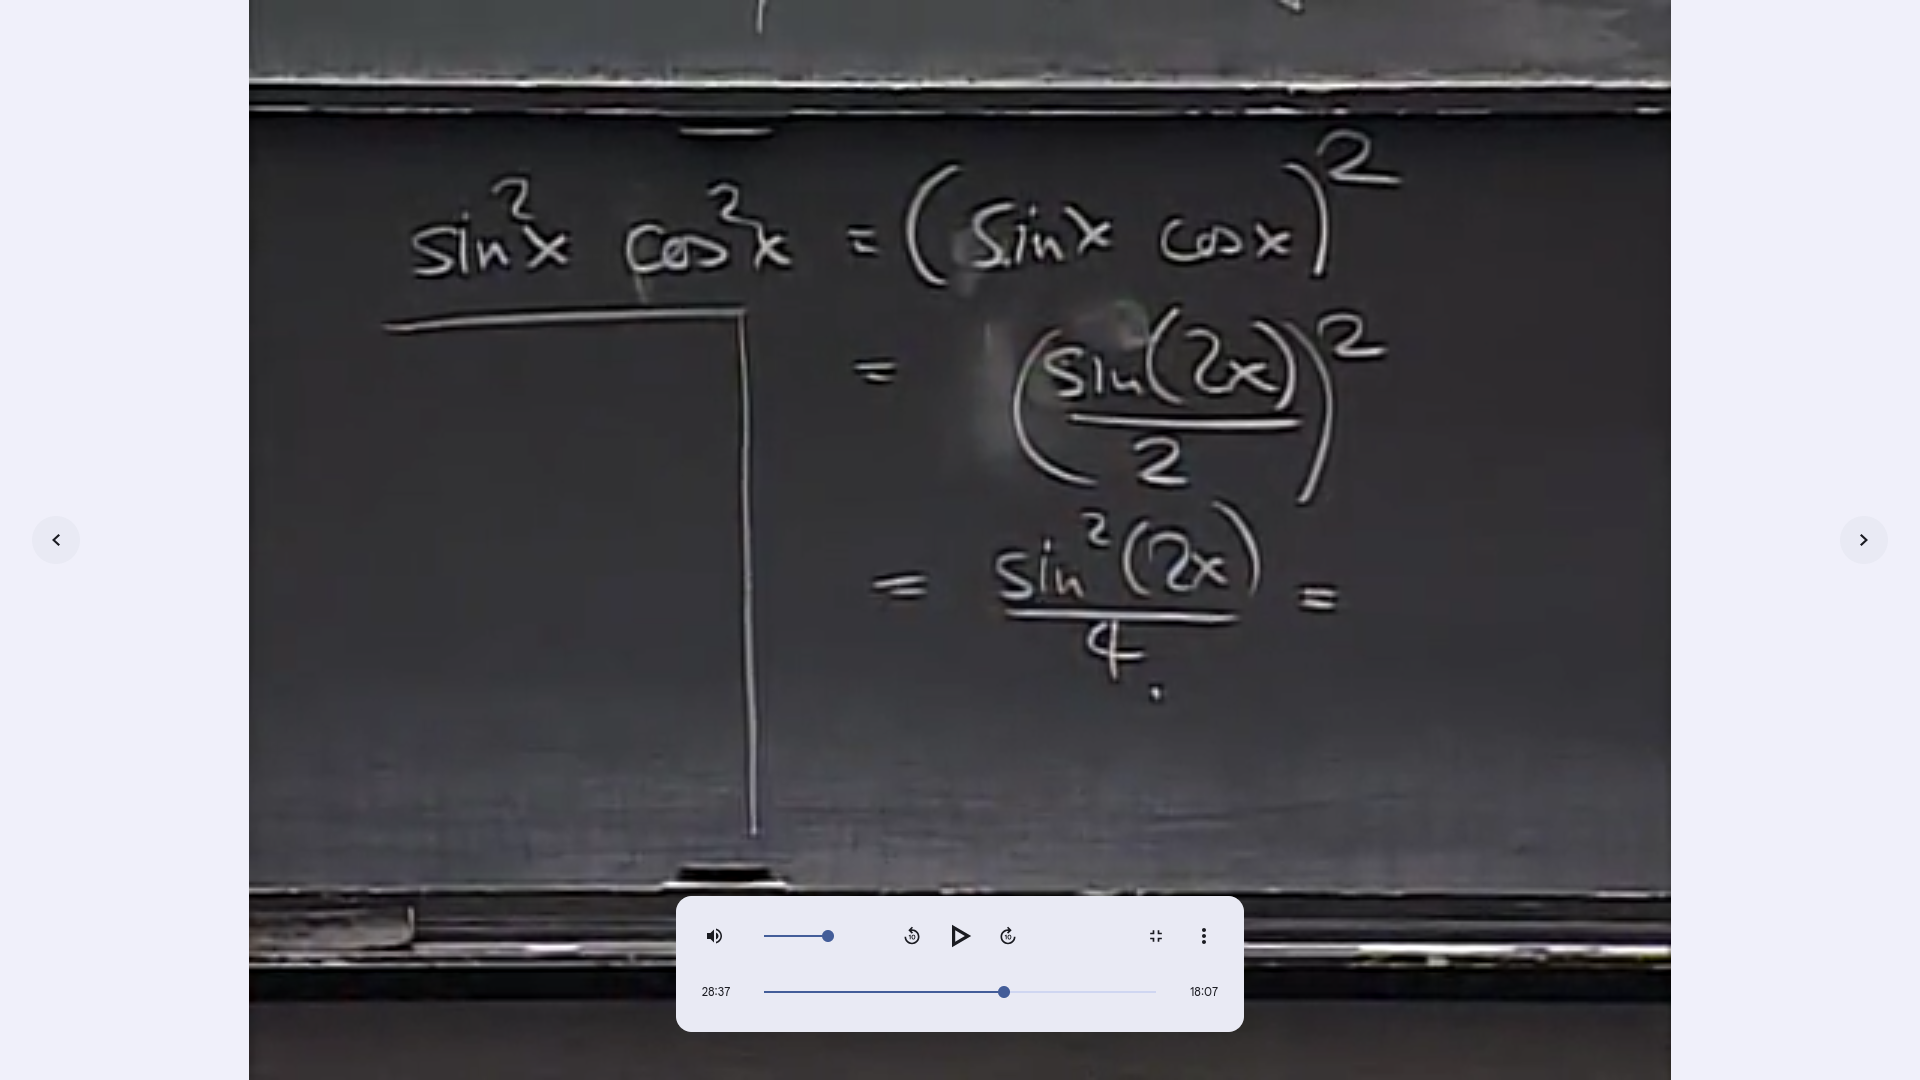 sin²x cos²x = (sinx cosx)²
= (sin(2x)/2)²
= sin²(2x)/4 =
10
10
28:37
18:07